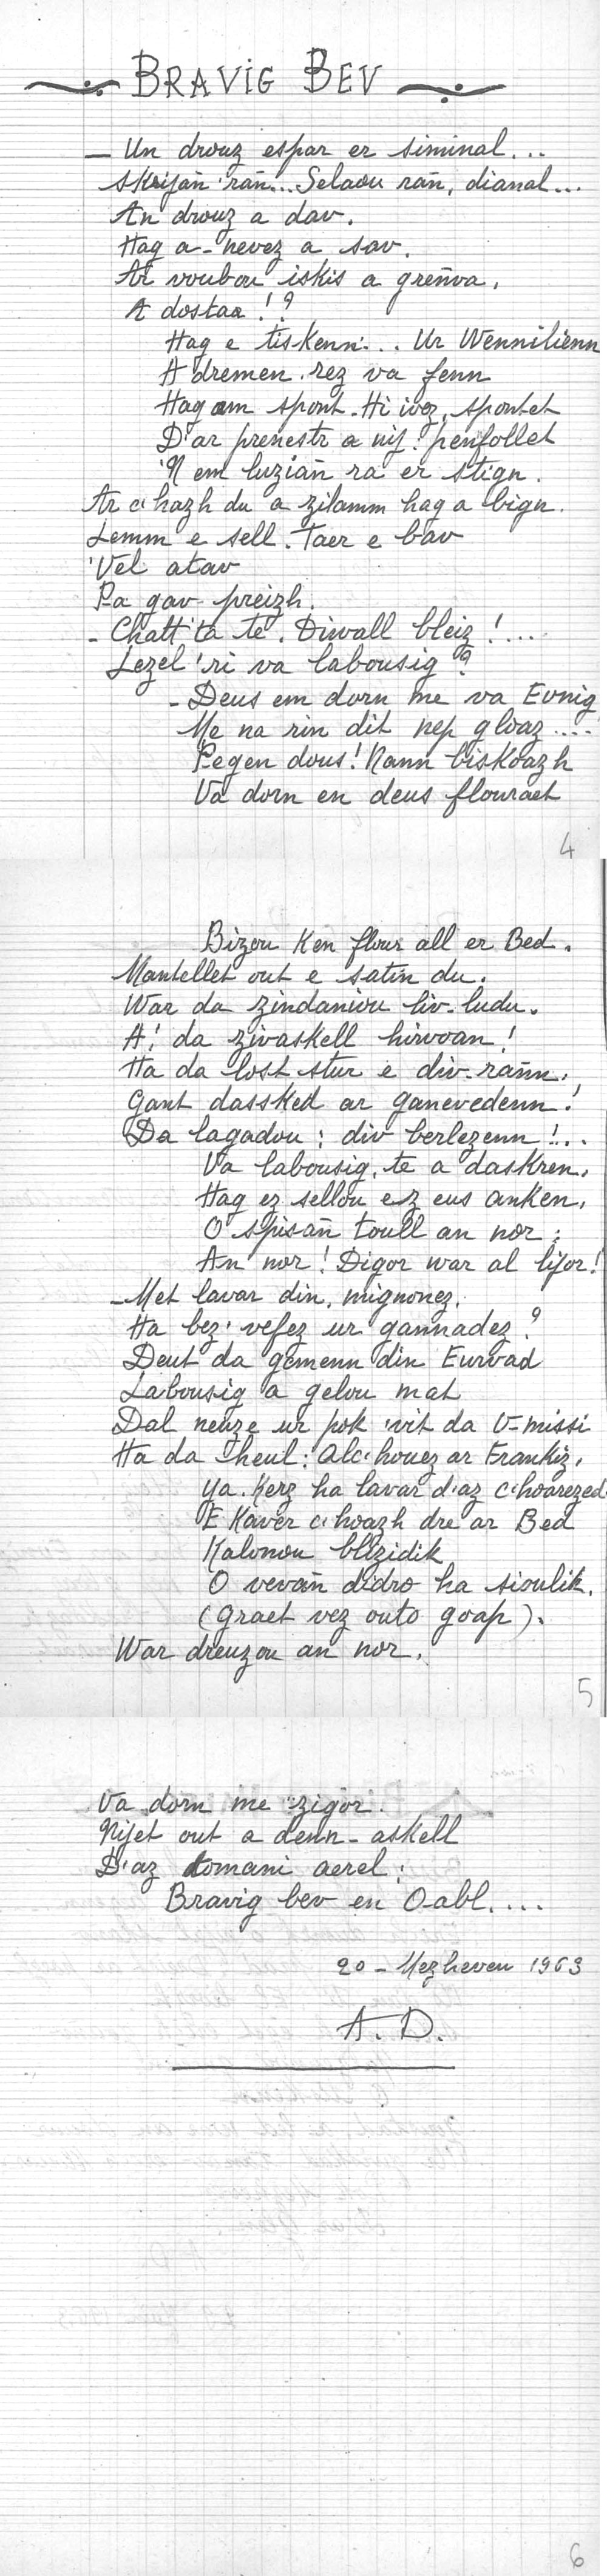 BRAVIG BEV
- Un drouz espar er siminal...
Skrijañ 'rañ... Selaou ran, dianal...
An drouz a dav.
Hag a-nevez a sav.
Ar voubou iskis a greñva,
A dostaa!?
Hag e tiskenn... Ur Wennilienn
A dremen rez va fenn
Hag am spont. Hi ivez, spontet
D'ar prenestr a nij: penfollet
'N em luziañ ra er stign.
Ar c'hazh du a zilamm hag a bign.
Lemm e sell. Taer e bav
'Vel atav
Pa gav preizh.
- Chatt'ta te. Diwall bleiz!....
Lezel 'ri va labousig?
- Deus em dorn me va Evnig
Me na rin dit nep gloaz....
Pegen dous! Nann biskoazh
Va dorn en deus flouraet
4
Bizou ken flour all er Bed.
Mantellet out e satin du.
War da zindaniou liv-ludu.
A! da zivaskell hirvoan!
Ha da lost stur e div-rann,
Gant dassked ar ganevedenn!
Da lagadou: div berlezenn!...
Va labousig, te a daskren,
Hag ez sellou ez eus anken,
O spisañ toull an nor:
An nor! Digor war al lijor!
- Met lavar din, mignonez,
Ha bez' vefez ur gannadez?
Deut da gemenn din Eurvad
Labousig a gelou mat
Dal neuze ur pok 'vit da V-missi
Ha da heul: Alc'houez ar Frankiz,
Ya. Kerz ha lavar d'az c'hoarezed
E Kaver c'hoazh dre ar Bed
Kalonou blizidik
O vevañ didro ha sioulik.
(Graet vez outo goap).
War dreuzou an nor.
5
Va dorn me zigor.
Nijet out a denn-askell
D'az domani aerel:
Bravig bev en Oabl....
20 - Mezheven 1963
A. D.
6